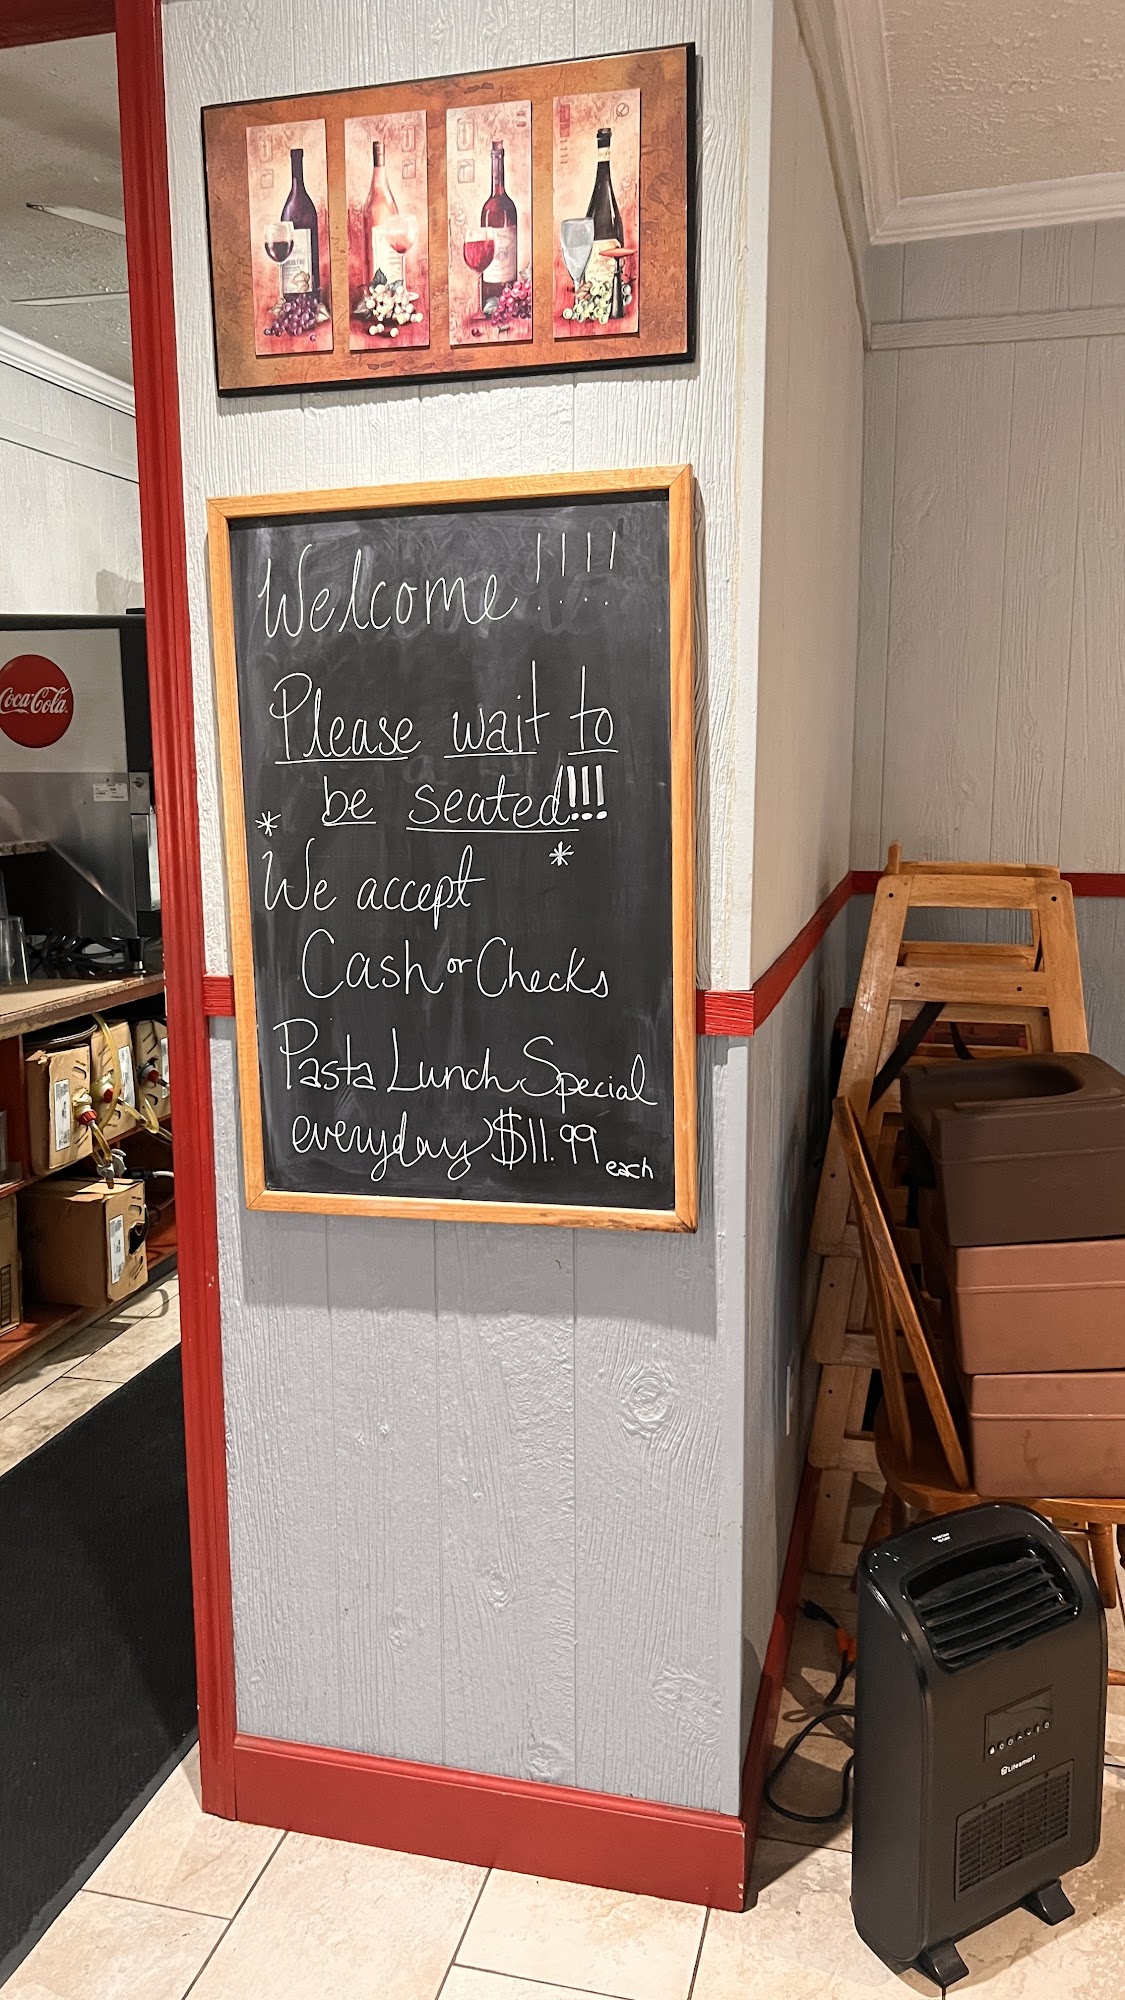 Welcome!!!!
Please wait to
be seated!!!
* We accept *
Cash or Checks
Pasta Lunch Special
everyday $11.99 each
Coca-Cola
Lifesmart